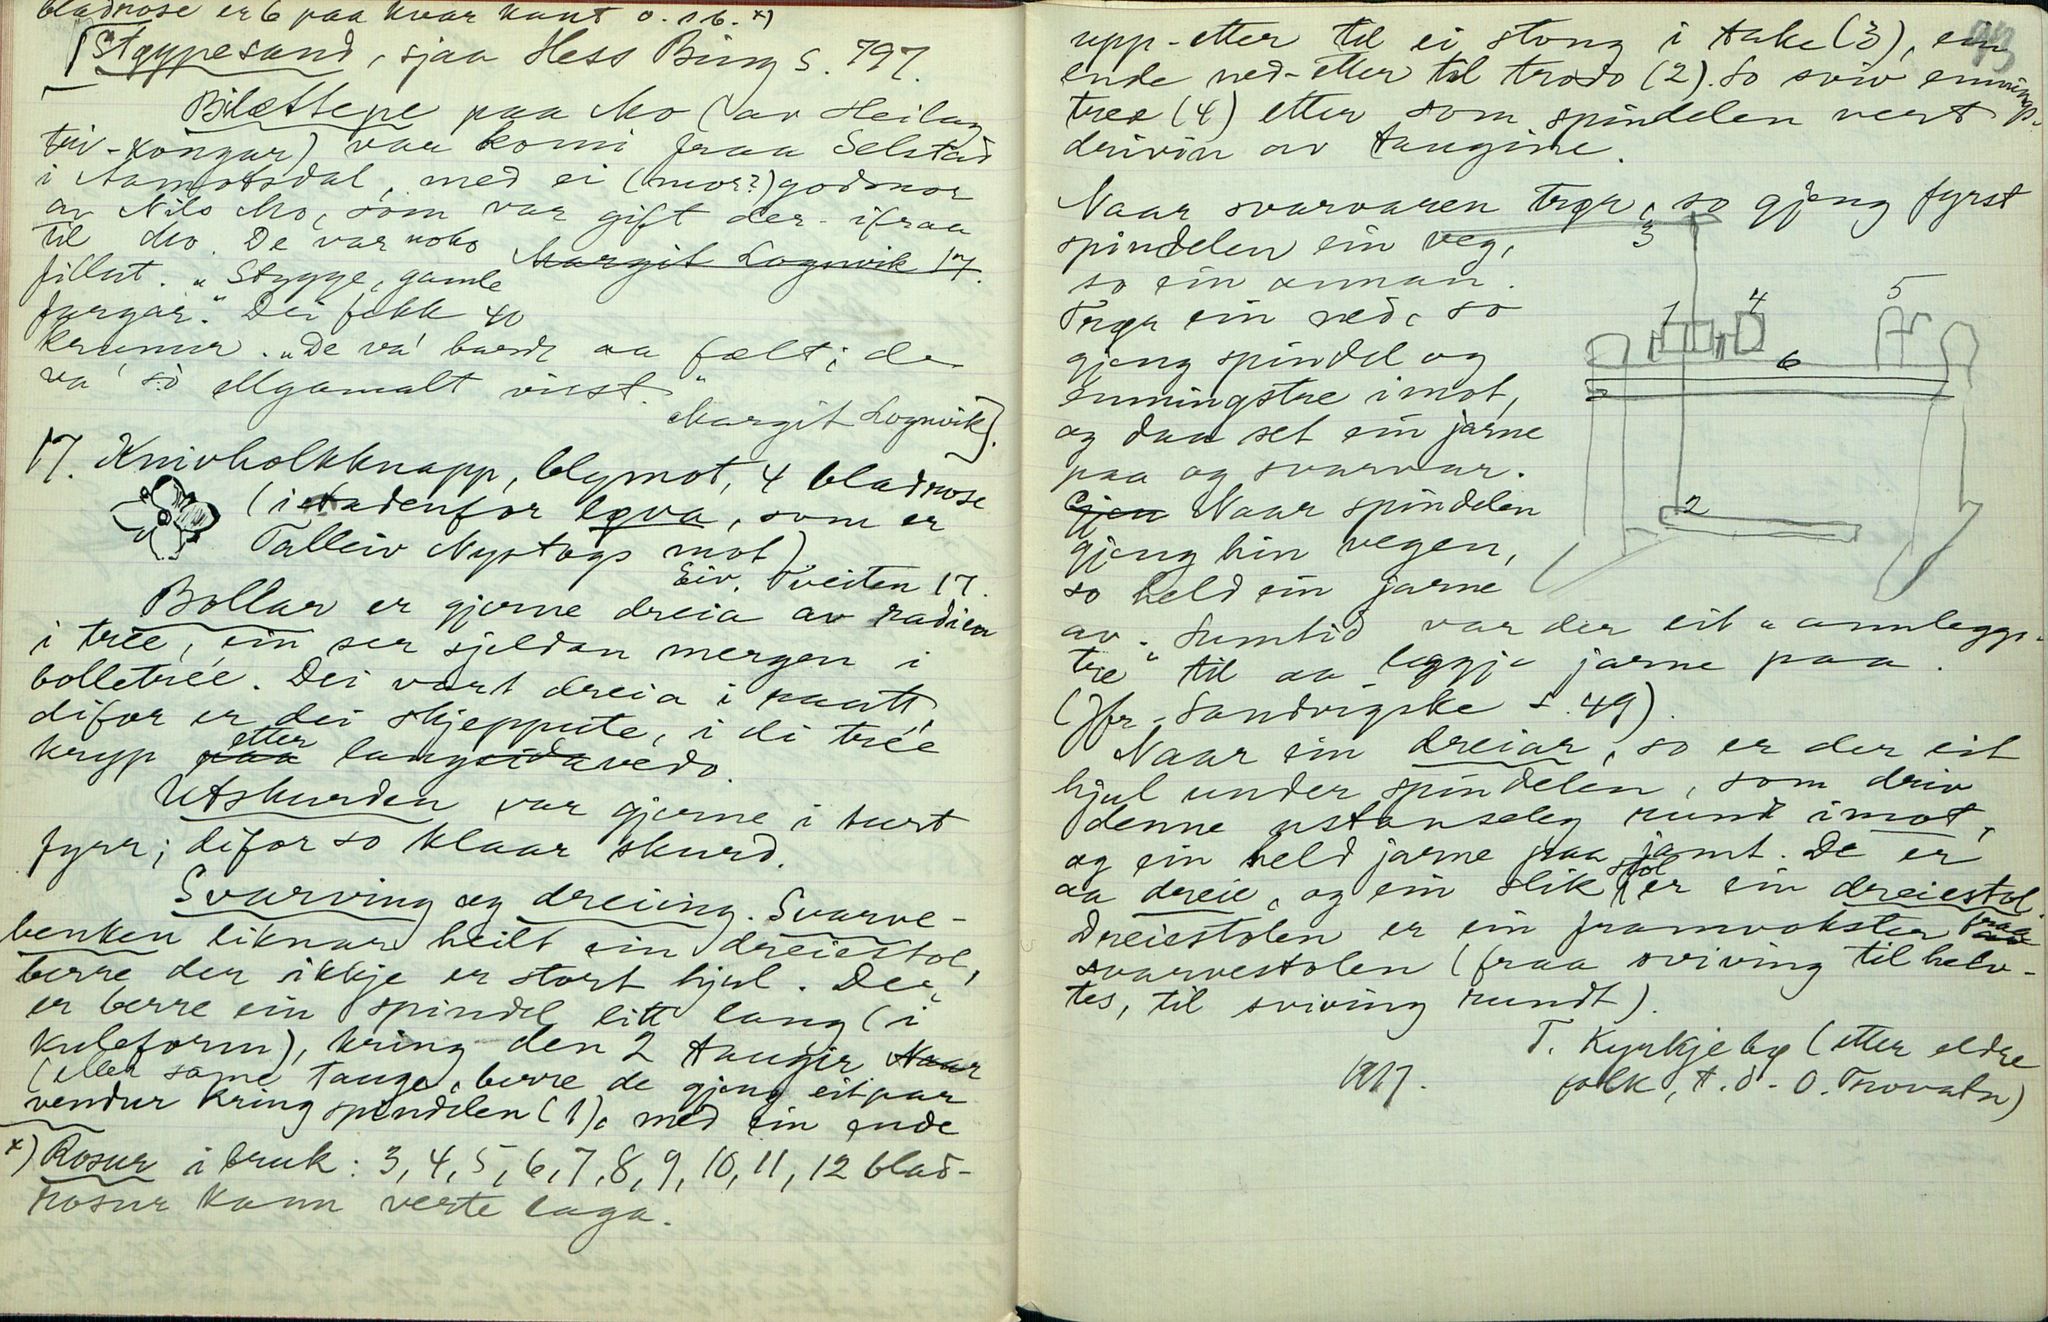 bladrose er 6 paa kvar kant o. s b. x)
[Støypesand, sjaa Hess Bing s. 797.
Bilættepe paa Mo (av Heilag
tri-kongar) var komi fraa Selstad
i Aamotsdal, med ei (mor?) godmor
av Nils Mo, som var gift der-ifraa
til Mo. De var noko Margit Lognvik 17.
fillut. "Stygge, gamle
fargar." Dei fekk 40
krunur. "De va' bare aa fælt; de
va' so ellgamalt virst."
Margit Lognvik].
17. Knivholkknapp, blymot, 4 bladrose
(i stadenfor løva, som er
Talleiv Nystogs mot)
Eiv. Tveiten 17.
Bollar er gjerne dreia av radien
i trée, ein ser sjeldan mergen i
bolletrée. Dei vart dreia i raatt
difor er dei skjeppute, i di trée
kryp paa etter langsidavedo.
Utskurden var gjerne i turt
fyrr; difor so klaar skurd.
Svarving og dreiing. Svarve-
benken liknar heilt ein dreiestol,
berre der ikkje er stort hjul. Der
er berre ein spindel litt lang (i
kuleform), kring den 2 taugir Naar
(eller same tauge, berre de gjeng eit par
vendur kring spindelen (1), med ein ende
x) Rosur i bruk: 3, 4, 5, 6, 7, 8, 9, 10, 11, 12 blad-
rosur kann verte laga.
93
upp-etter til ei stong i take (3), ein
ende ned-etter til trødo (2). So sviv emnings-
tree (4) etter som spindelen vert
drivin av taugine.
Naar svarvaren trør, so gjeng fyrst
spindelen ein veg,
so ein annan.
Trør ein ned, so
gjeng spindel og
emningstre imot,
og daa set ein jarne
paa og svarvar.
Gjen Naar spindelen
gjeng hin vegen,
so held ein jarne
av. Sumtid var der eit "annleggs-
tre" til aa leggje jarne paa.
(Jfr. Sandvigske s. 49).
Naar ein dreiar, so er der eit
hjul under spindelen, som driv
denne ustanseleg rund imot,
og ein held jarne paa jamt. De er
aa dreie, og ein slik stol er ein dreiestol.
Dreiestolen er ein framvokster av fraa
svarvestolen (fraa sviving til helv-
tes, til sviving rundt).
T. Kyrkjebø (etter eldre
1917. folk, t. d. O. Trovatn)
3
1
4
5
6
2